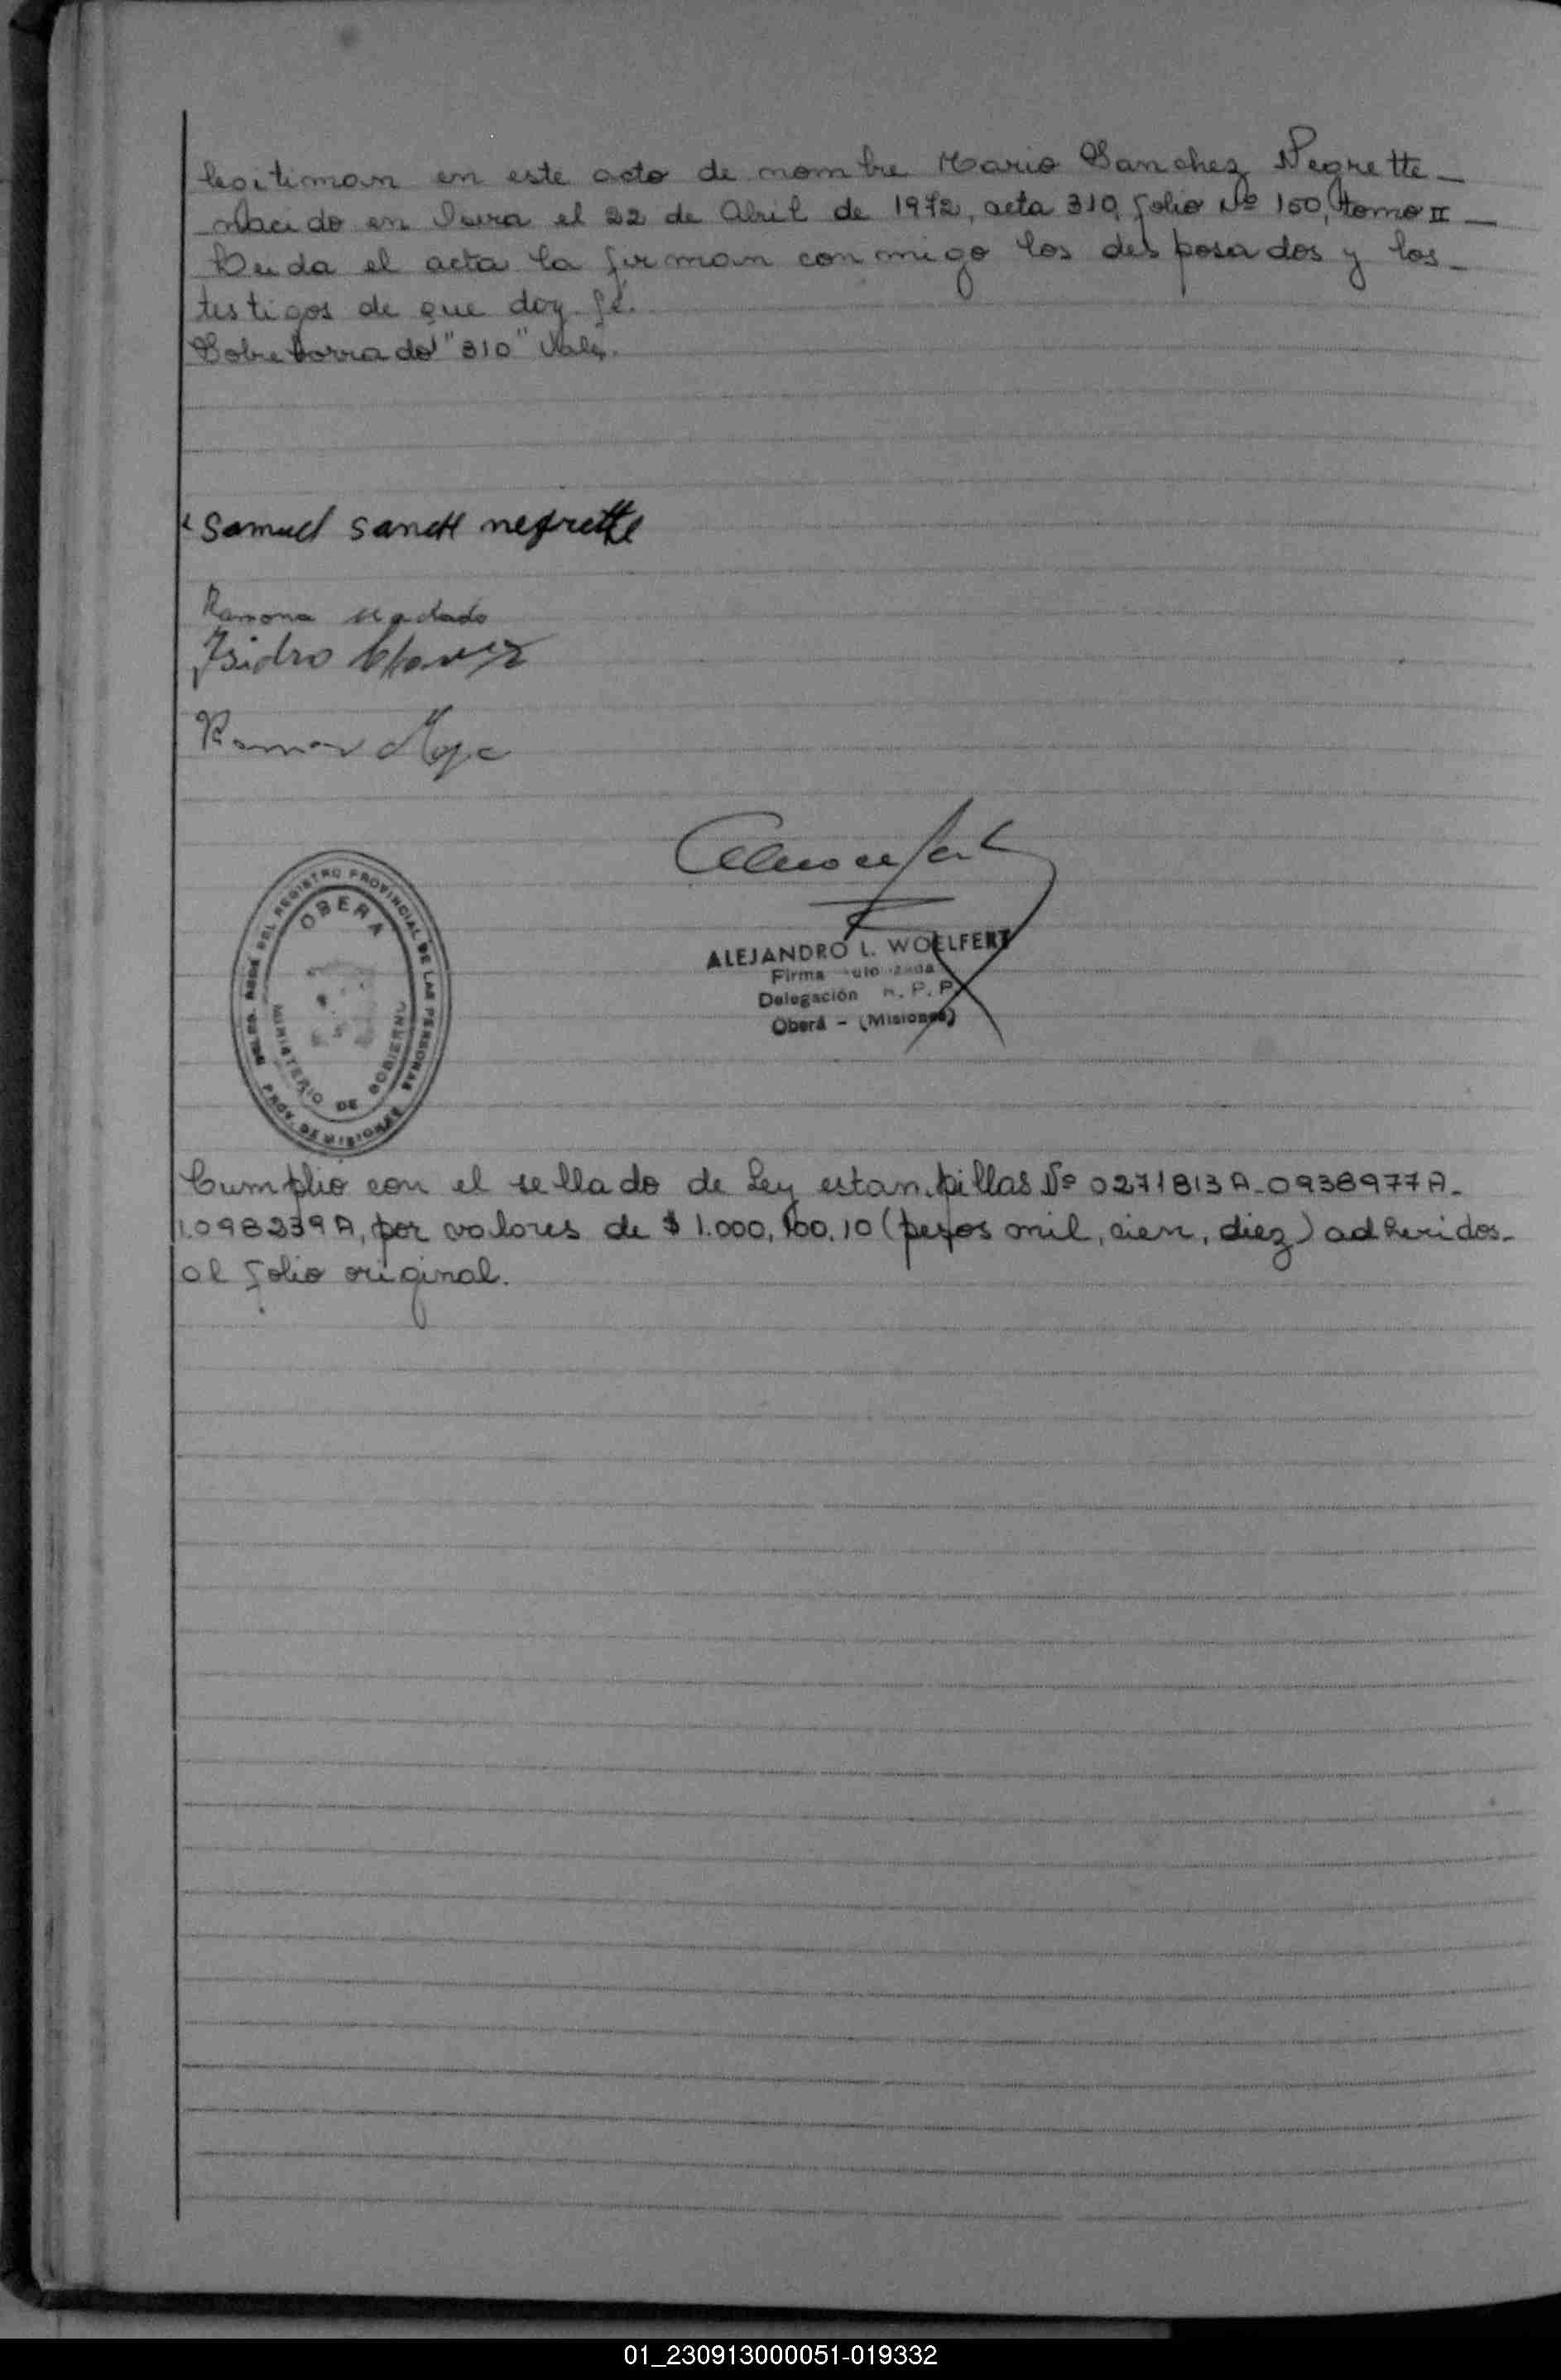 legitiman en este acto de nombre Mario Sanchez Negrette_
nacido en el 22 de Abril de 1972, acta 310, folio Nº 150, tomo II_
Leida el acta la firman conmigo los desposados y los_
testigos de que doy fé.
Sobre borrado "310" Vale.
Samuel sanch negrette
Ramona
Isidro
Ramon
ALEJANDRO L. WOELFERT
Firma
Delegación R. P. P.
Oberá - (Misiones)
DEL REGISTRO PROVINCIAL DE LAS PERSONAS
OBERA
MINISTERIO DE GOBIERNO
PROV. DE MISIONES
Cumplió con el sellado de Ley estampillas Nº 0271813A-0938977A-
1.098239A, por valores de $ 1.000, 100, 10 (pesos mil, cien, diez) adheridos-
al folio original.
01_230913000051-019332